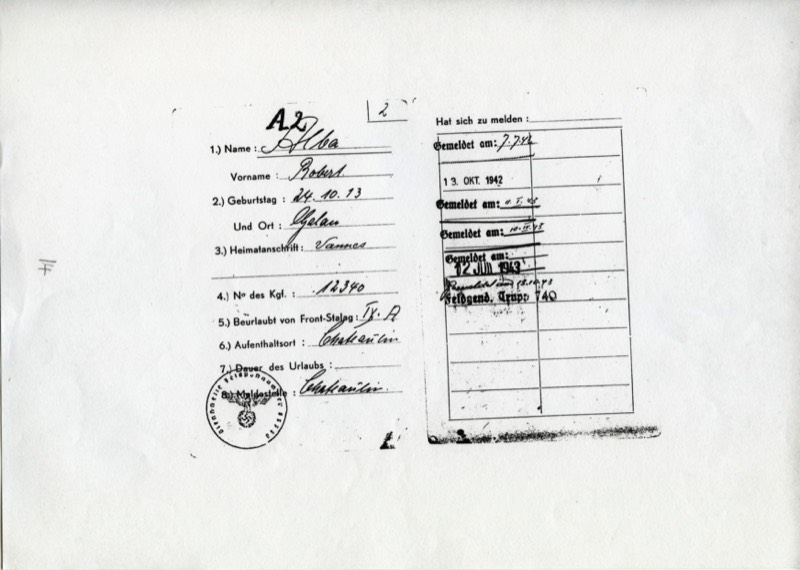 A2
2
1.) Name : Alba
Vorname : Robert
2.) Geburtstag : 24. 10. 13
Und Ort :
3.) Heimatanschrift : Vannes
4.) Nº des Kgf. : 12340
5.) Beurlaubt von Front-Stalag : IX. A
6.) Aufenthaltsort : Chateaulin
7.) Dauer des Urlaubs :
8.) Meldestelle : Chateaulin
Hat sich zu melden :
Gemeldet am: 7.7.42
13. OKT. 1942
Gemeldet am:
Gemeldet am:
Gemeldet am:
12 JUII 1943
Feldgend. Trupp 740